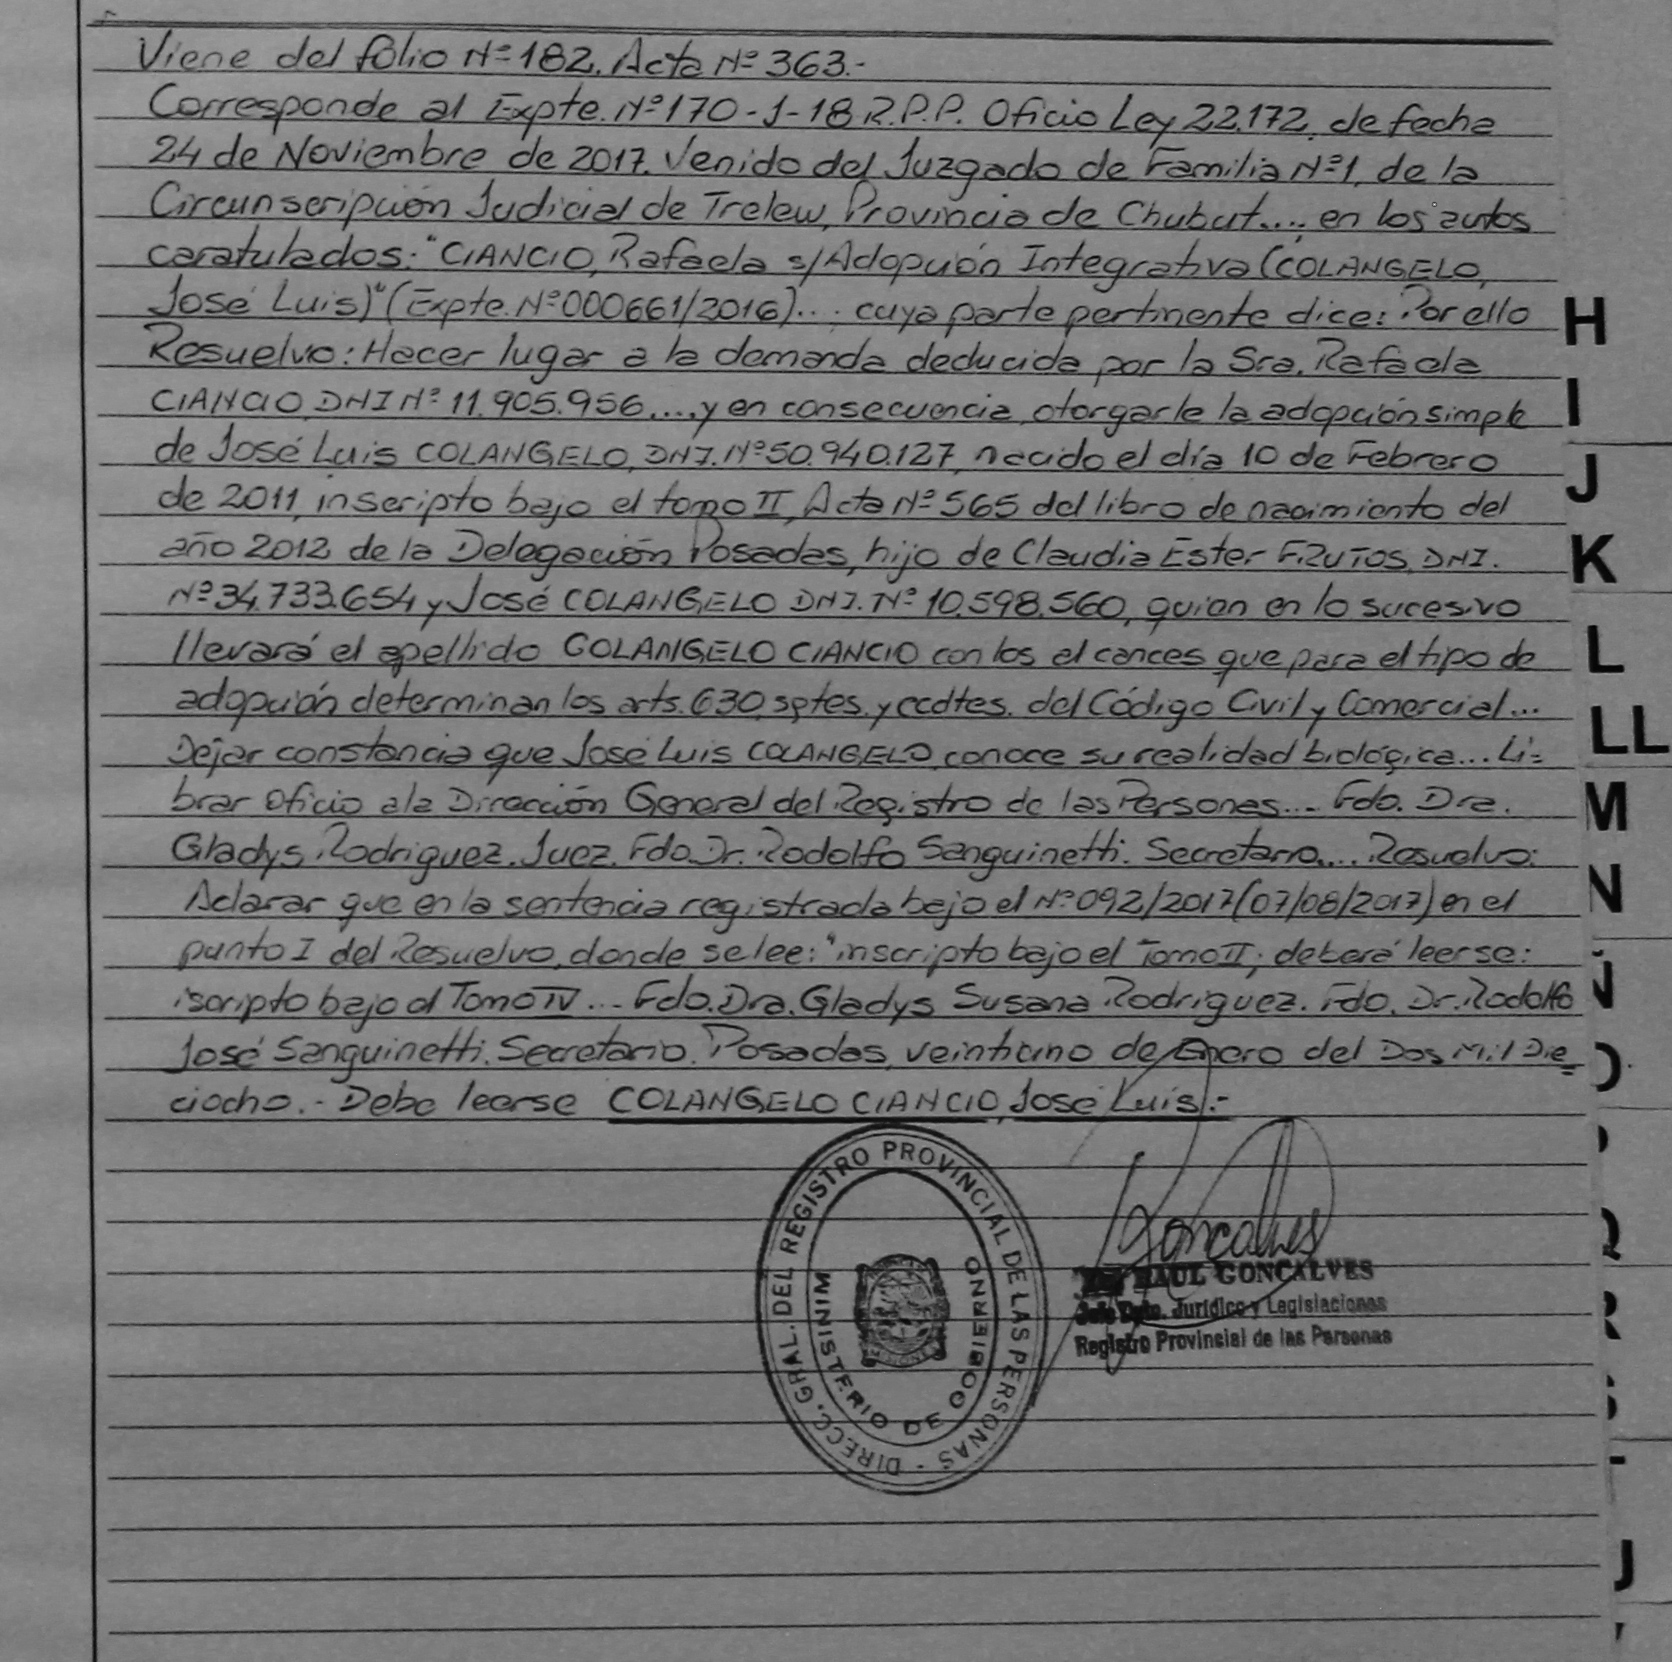 Viene del folio Nº 182. Acta Nº 363.-
Corresponde al Expte. Nº 170-J-18 R.P.P. Oficio Ley 22.172, de fecha
24 de Noviembre de 2017. Venido del Juzgado de Familia Nº 1, de la
Circunscripción Judicial de Trelew, Provincia de Chubut....; en los autos
caratulados: "CIANCIO, Rafaela s/Adopción Integrativa (COLANGELO,
José Luis)" (Expte. Nº 000661/2016)...; cuya parte pertinente dice: Por ello
Resuelvo: Hacer lugar a la demanda deducida por la Sra. Rafaela
CIANCIO, DNI Nº 11.905.956....,y en consecuencia, otorgarle la adopción simple
de José Luis COLANGELO, DNI. Nº 50.940.127, nacido el día 10 de Febrero
de 2011, inscripto bajo el tomo II, Acta Nº 565 del libro de nacimiento del
año 2012 de la Delegación Posadas, hijo de Claudia Ester FRUTOS, DNI.
Nº 34.733.654 y José COLANGELO DNI. Nº 10.598.560, quien en lo sucesivo
llevará el apellido COLANGELO CIANCIO con los alcances que para el tipo de
adopción determinan los arts. 630, sptes. y ccdtes. del Código Civil y Comercial...
Dejar constancia que José Luis COLANGELO, conoce su realidad biológica... Li=
brar Oficio a la Dirección General del Registro de las Personas.... Fdo. Dra.
Gladys Rodriguez. Juez. Fdo. Dr. Rodolfo Sanguinetti. Secretario.... Resuelvo:
Aclarar que en la sentencia registrada bajo el Nº 092/2017 (07/08/2017) en el
punto I del Resuelvo, donde se lee: "inscripto bajo el Tomo II; deberá leerse:
iscripto bajo el Tomo IV... Fdo. Dra. Gladys Susana Rodriguez. Fdo. Dr. Rodolfo
José Sanguinetti. Secretario. Posadas, veinticino de Enero del Dos Mil Die=
ciocho.- Debe leerse COLANGELO CIANCIO, José Luis.-
DIRECC. GRAL. DEL REGISTRO PROVINCIAL DE LAS PERSONAS -
MINISTERIO DE GOBIERNO
Goncalves
RAUL GONCALVES
Jefe Dpto. Jurídico y Legislaciones
Registro Provincial de las Personas
H
I
J
K
L
LL
M
N
Ñ
O
Q
R